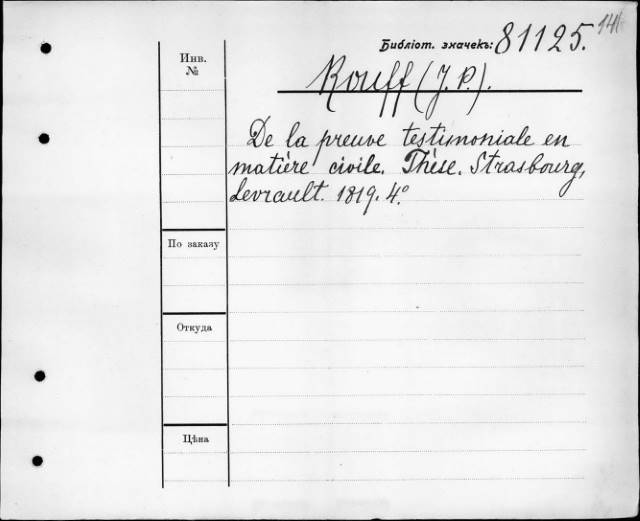 141
Библіот. значекъ: 81125.
Инв.
№
Rouff (J. P.).
De la preuve testimoniale en
matière civile. Thèse. Strasbourg,
Levrault. 1819. 4°
По заказу
Откуда
Цѣна